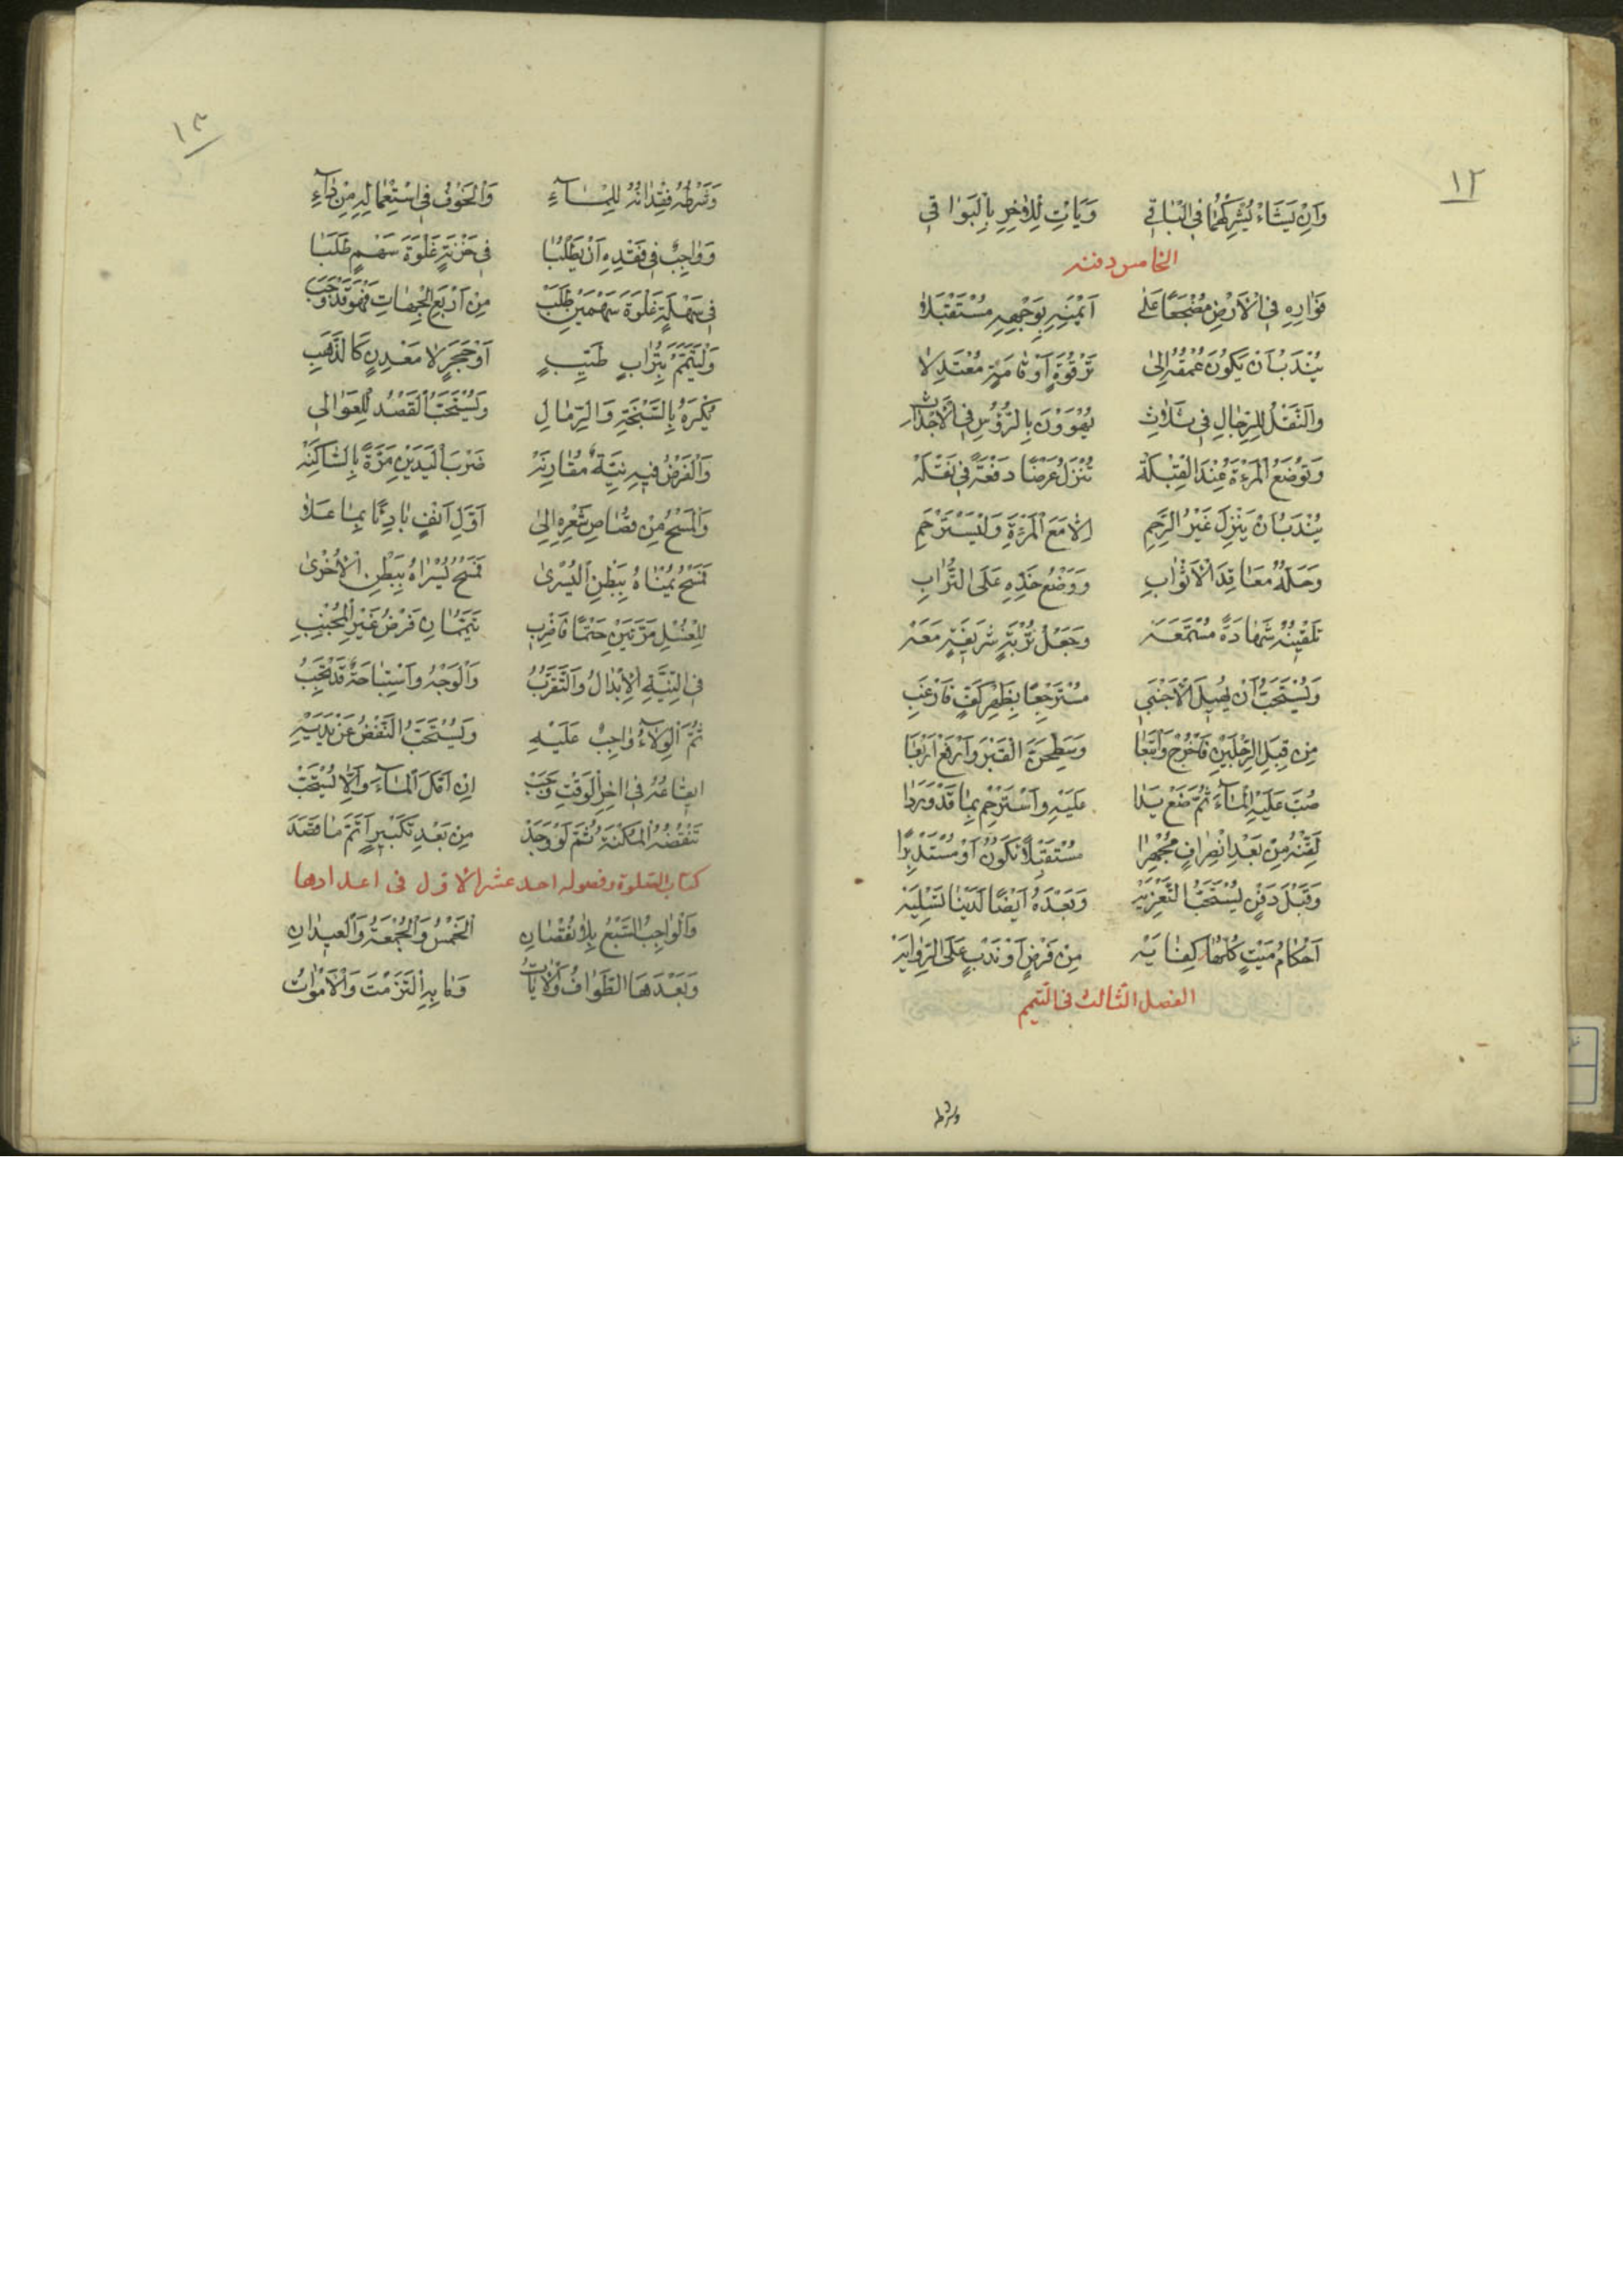 ١٢
وَاِنْ يَشَاءْ يُشْرِكْهُمَا فِي الْبَاقِي وَيَأتِ لِلْاُخْرِ بِالْبَوَاقِي
الخامس دفنه
فَوَارِهِ فِي الْاَرْضِ مُضْجَعًا عَلٰى اَيْمَنِهِ بِوَجْهِهِ مُسْتَقْبِلًا
يُنْدَبُ اَنْ يَكُونَ عُمْقُهُ اِلٰى تَرْقُوَةٍ اَوْ قَامَةٍ مُعْتَدِلًا
وَالنَّقْلُ لِلرِّجَالِ فِي ثَلَاثِ يُهْوَوْنَ بِالرُّؤُسِ فِي الْاَجْدَاثِ
وَتُوضَعُ الْمَرْءَةُ عِنْدَ الْقِبْلَةْ تُنْزَلُ عَرْضًا دَفْعَةً فِي نَقْلَهْ
يُنْدَبُ اَنْ يَنْزِلَ غَيْرُ الرَّحِمِ اِلَّا مَعَ الْمَرْءَةِ وَلْيَسْتَرْحِمِ
وَحَلُّهُ مَعَاقِدَ الْاَثْوَابِ وَوَضْعُ خَدِّهِ عَلَى التُّرَابِ
تَلْقِينُهُ شَهَادَةً مُسْتَمَعَهْ وَجَعْلُ تُرْبَةٍ شَرِيفَةٍ مَعَهْ
وَيُسْتَحَبُّ اَنْ يُهِيلَ الْاَجْنَبِي مُسْتَرْجِعًا بِظَهْرِ كَفٍّ فَارْغَبِ
مِنْ قِبَلِ الرِّجْلَيْنِ فَاخْرُجْ وَاتْبَعَا وَسَطِّحَنَّ الْقَبْرَ وَارْفَعْ اَرْبَعَا
صُبَّ عَلَيْهِ الْمَاءَ ثُمَّ ضَعْ يَدَا عَلَيْهِ وَاسْتَرْحِمْ بِمَا قَدْ وَرَدَا
لَقِّنْهُ مِنْ بَعْدِ انْصِرَافٍ مُجْهِرًا مُسْتَقْبِلًا تَكُونُ اَوْ مُسْتَدْبِرًا
وَقَبْلَ دَفْنٍ يُسْتَحَبُّ التَّعْزِيَهْ وَبَعْدَهُ اَيْضًا لَدَيْنَا تَسْلِيَهْ
اَحْكَامُ مَيْتٍ كُلُّهَا كِفَايَهْ مِنْ فَرْضٍ اَوْ نَدْبٍ عَلَى الرِّوَايَهْ
الفصل الثالث في التيمم
وشرطه
١٣
وَشَرْطُهُ فِقْدَانُهُ لِلْمَاءِ وَالْخَوْفُ فِي اسْتِعْمَالِهِ مِنْ دَاءِ
وَوَاجِبٌ فِي فَقْدِهِ اَنْ يَطْلُبَا فِي حَزْنَةٍ غَلْوَةَ سَهْمٍ طَلَبَا
فِي سَهْلَةٍ غَلْوَةَ سَهْمَيْنِ طَلَبْ مِنْ اَرْبَعِ الْجِهَاتِ فَهْوَ قَدْ وَجَبْ
وَلْيَتَيَمَّمْ بِتُرَابٍ طَيِّبٍ اَوْ حَجَرٍ لَا مَعْدِنٍ كَالذَّهَبِ
يُكْرَهُ بِالسَّبْخَةِ وَالرِّمَالِ وَيُسْتَحَبُّ الْقَصْدُ لِلْعَوَالِي
وَالْفَرْضُ فِيهِ نِيَّةٌ مُقَارِنَهْ ضَرْبَ الْيَدَيْنِ مَرَّةً بِالسَّاكِنَهْ
وَالْمَسْحُ مِنْ قُصَاصِ شَعْرِهِ اِلٰى اَوَّلِ اَنْفٍ بَادِئًا بِمَا عَلَا
فَمَسْحُ يُمْنَاهُ بِبَطْنِ الْيُسْرٰى فَمَسْحُ يُسْرَاهُ بِبَطْنِ الْاُخْرٰى
لِلْغُسْلِ مَرَّتَيْنِ حَتْمًا فَاضْرِبِ تَيَمُّمَانِ فَرْضُ غَيْرِ الْمُجْنِبِ
فِي النِّيَّةِ الْاِبْدَالُ وَالتَّقَرُّبُ وَالْوَجْهُ وَاسْتِبَاحَةٌ قَدْ تَجِبُ
ثُمَّ الْوِلَاءُ وَاجِبٌ عَلَيْهِ وَيُسْتَحَبُّ النَّفْضُ عَنْ يَدَيْهِ
اِيقَاعُهُ فِي اٰخِرِ الْوَقْتِ وَجَبْ اِنْ اَمَّلَ الْمَاءَ وَاِلَّا يُسْتَحَبّْ
تَنْقُضُهُ الْمُكْنَةُ ثُمَّ لَوْ وَجَدْ مِنْ بَعْدِ تَكْبِيرٍ اَتَمَّ مَا قَصَدَ
كتاب الصلوة وفصوله احد عشر الاول في اعدادها
وَالْوَاجِبُ السَّبْعُ بِلَا نُقْصَانِ اَلْخَمْسُ وَالْجُمْعَةُ وَالْعِيدَانِ
وَبَعْدَهَا الطَّوَافُ وَالْاٰيَاتُ وَمَا بِهِ الْتَزَمْتَ وَالْاَمْوَاتُ